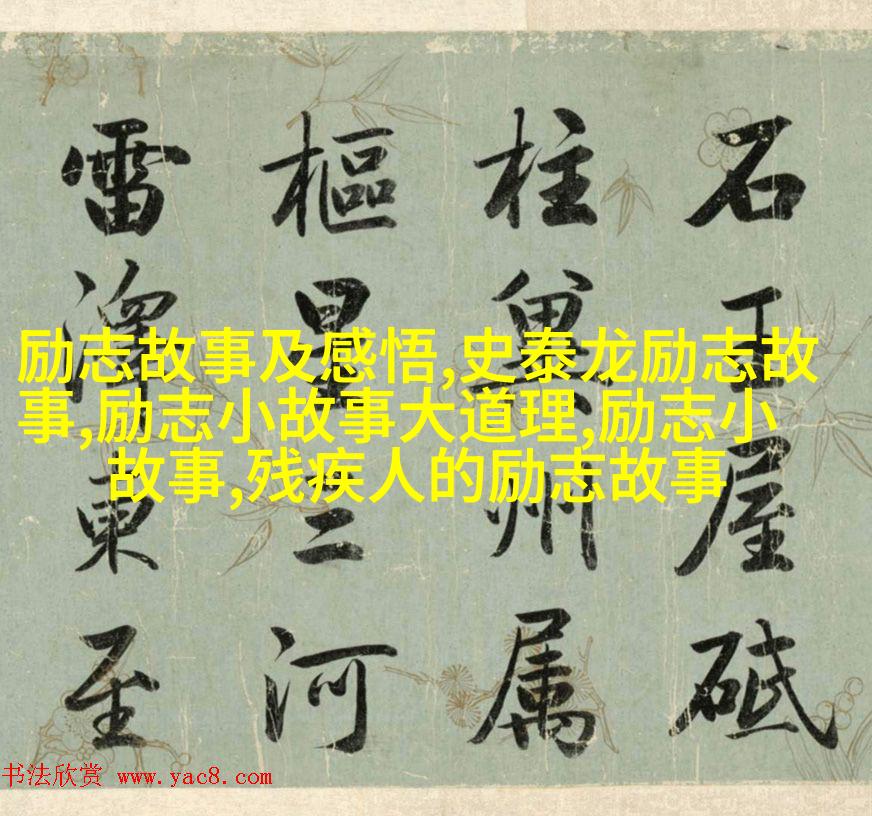 石王屋砥
柱冀州属
樞星三河
雷澤東至
励志故事及感悟,史泰龙励志故
事,励志小故事大道理,励志小
故事,残疾人的励志故事
书法欣赏 www.yac8.com